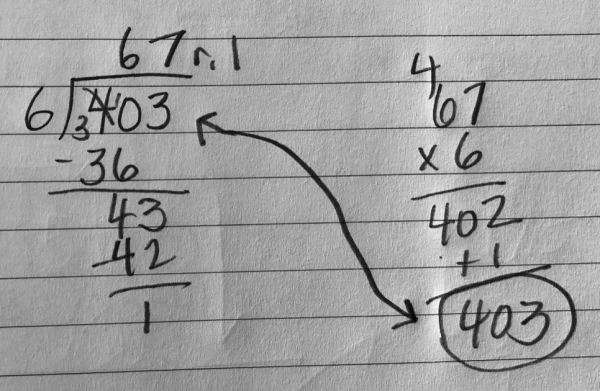 67 r. 1
6)403
-36
43
-42
1
4
67
x 6
402
+1
403